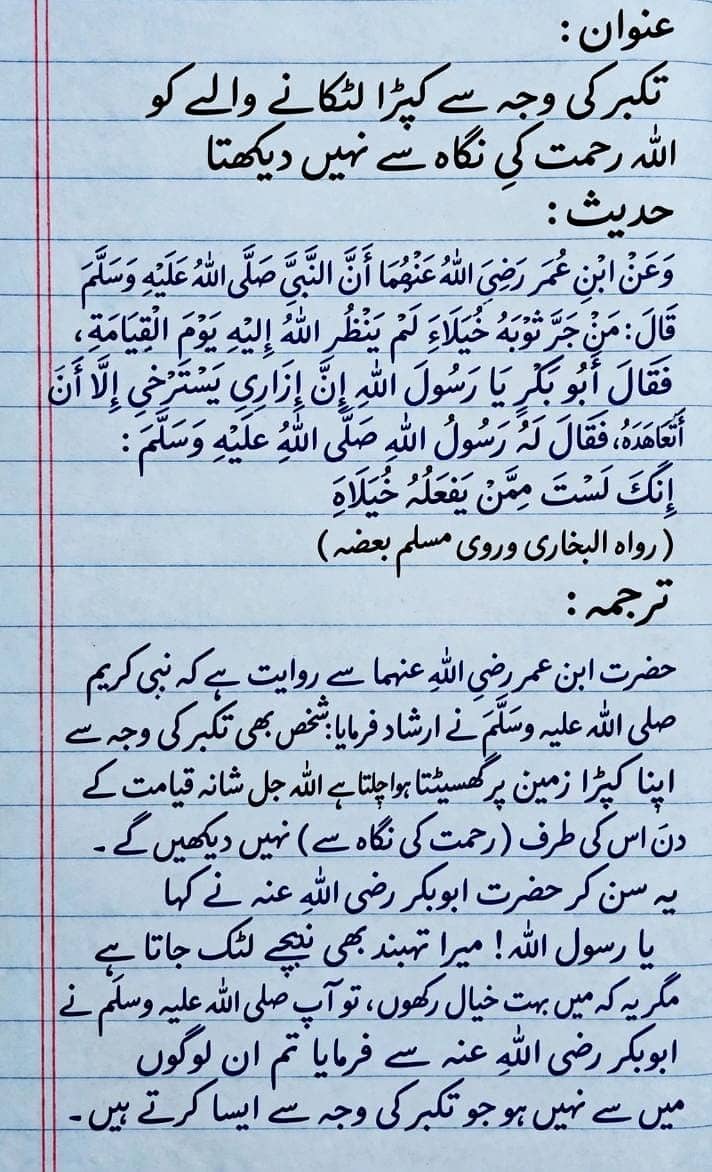 عنوان :
تکبر کی وجہ سے کپڑا لٹکانے والے کو
اللہ رحمت کی نگاہ سے نہیں دیکھتا
حدیث :
وَعَنْ ابْنِ عُمَر رَضِيَ اللهُ عَنْهُمَا أَنَّ النَّبِيَّ صَلَّى اللهُ عَلَيْهِ وَسَلَّمَ
قَالَ: مَنْ جَرَّ ثَوْبَهُ خُيَلَاءَ لَمْ يَنْظُرِ اللهُ إِلَيْهِ يَوْمَ الْقِيَامَةِ،
فَقَالَ أَبُو بَكْرٍ يَا رَسُولَ اللهِ إِنَّ إِزَارِي يَسْتَرْخِي إِلَّا أَنَ
أَتَعَاهَدَهُ، فَقَالَ لَهُ رَسُولُ اللهِ صَلَّى اللهُ عَلَيْهِ وَسَلَّمَ :
إِنَكَ لَسْتَ مِمَّنْ يَفْعَلُهُ خُيَلَاهَِ
(رواه البخاری وروی مسلم بعضہ)
ترجمہ :
حضرت ابن عمر رضیِ اللهِ عنہما سے روایت ہے کہ نبی کریم
صلی اللہ علیہ وسَلَّمَ نے ارشاد فرمایا: شخص بھی تکبر کی وجہ سے
اپنا کپڑا زمین پر گھسیٹتا ہوا چلتا ہے اللہ جل شانہ قیامت کے
دنَ اس کی طرف (رحمت کی نگاہ سے) نہیں دیکھیں گے۔
یہ سن کر حضرت ابوبکر رضی اللهِ عنہ نے کہا
یا رسول اللہ! میرا تہبند بھی نیچے لٹک جاتا ہے
مگر یہ کہ میں بہت خیال رکھوں، تو آپ صلی اللہ علیہ وسلَم نے
ابوبکر رضی اللهِ عنہ سے فرمایا تم ان لوگوں
میں سے نہیں ہو جو تکبر کی وجہ سے ایسا کرتے ہیں۔